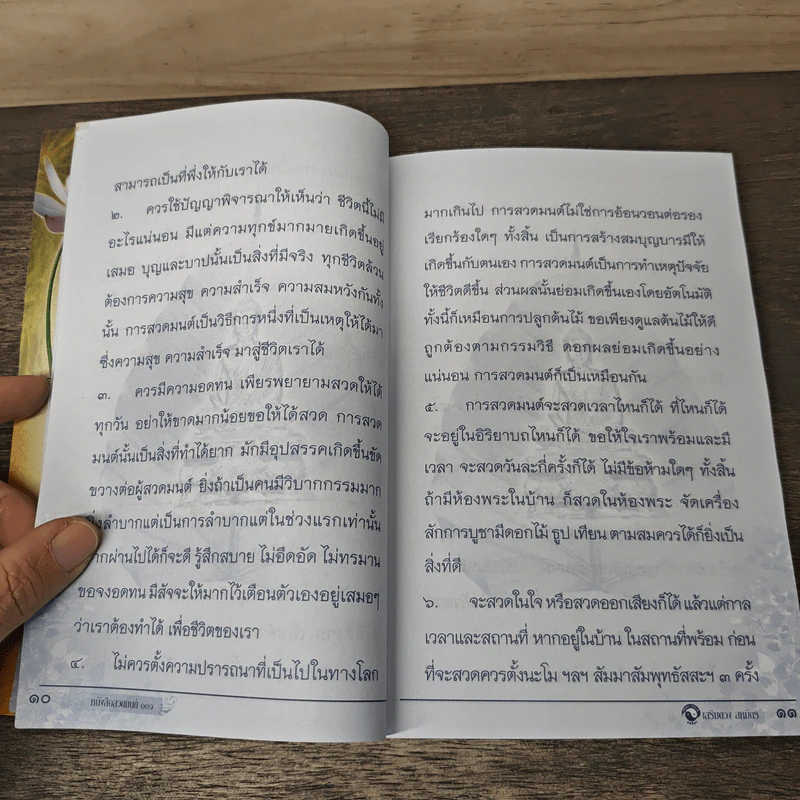 สามารถเป็นที่พึ่งให้กับเราได้
๒. ควรใช้ปัญญาพิจารณาให้เห็นว่า ชีวิตนี้ไม่มี
อะไรแน่นอน มีแต่ความทุกข์มากมายเกิดขึ้นอยู่
เสมอ บุญและบาปนั้นเป็นสิ่งที่มีจริง ทุกชีวิตล้วน
ต้องการความสุข ความสำเร็จ ความสมหวังกันทั้ง
นั้น การสวดมนต์เป็นวิธีการหนึ่งที่เป็นเหตุให้ได้มา
ซึ่งความสุข ความสำเร็จ มาสู่ชีวิตเราได้
๓. ควรมีความอดทน เพียรพยายามสวดให้ได้
ทุกวัน อย่าให้ขาดมากน้อยขอให้ได้สวด การสวด
มนต์นั้นเป็นสิ่งที่ทำได้ยาก มักมีอุปสรรคเกิดขึ้นขัด
ขวางต่อผู้สวดมนต์ ยิ่งถ้าเป็นคนมีวิบากกรรมมาก
ลำบากแต่เป็นการลำบากแต่ในช่วงแรกเท่านั้น
ผ่านไปได้ก็จะดี รู้สึกสบาย ไม่อึดอัด ไม่ทรมาน
ขอจงอดทน มีสัจจะให้มากไว้เตือนตัวเองอยู่เสมอๆ
ว่าเราต้องทำได้ เพื่อชีวิตของเรา
๔. ไม่ควรตั้งความปรารถนาที่เป็นไปในทางโลก
๑๐ หนังสือสวดมนต์ ๑๐๑
มากเกินไป การสวดมนต์ไม่ใช่การอ้อนวอนต่อรอง
เรียกร้องใดๆ ทั้งสิ้น เป็นการสร้างสมบุญบารมีให้
เกิดขึ้นกับตนเอง การสวดมนต์เป็นการทำเหตุปัจจัย
ให้ชีวิตดีขึ้น ส่วนผลนั้นย่อมเกิดขึ้นเองโดยอัตโนมัติ
ทั้งนี้ก็เหมือนการปลูกต้นไม้ ขอเพียงดูแลต้นไม้ให้ดี
ถูกต้องตามกรรมวิธี ดอกผลย่อมเกิดขึ้นอย่าง
แน่นอน การสวดมนต์ก็เป็นเหมือนกัน
๕. การสวดมนต์จะสวดเวลาไหนก็ได้ ที่ไหนก็ได้
จะอยู่ในอิริยาบถไหนก็ได้ ขอให้ใจเราพร้อมและมี
เวลา จะสวดวันละกี่ครั้งก็ได้ ไม่มีข้อห้ามใดๆ ทั้งสิ้น
ถ้ามีห้องพระในบ้าน ก็สวดในห้องพระ จัดเครื่อง
สักการบูชามีดอกไม้ ธูป เทียน ตามสมควรได้ก็ยิ่งเป็น
สิ่งที่ดี
๖. จะสวดในใจ หรือสวดออกเสียงก็ได้ แล้วแต่กาล
เวลาและสถานที่ หากอยู่ในบ้าน ในสถานที่พร้อม ก่อน
ที่จะสวดควรตั้งนะโม ฯลฯ สัมมาสัมพุทธัสสะฯ ๓ ครั้ง
เสริมดวง สหมิตร ๑๑